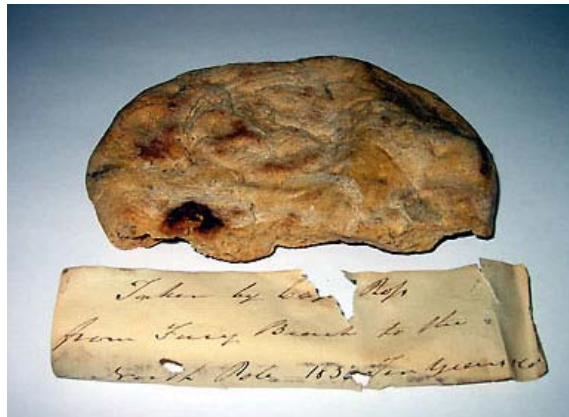 Taken by Capn Ross
from Fury Beach to the
North Pole 183 Ten Years